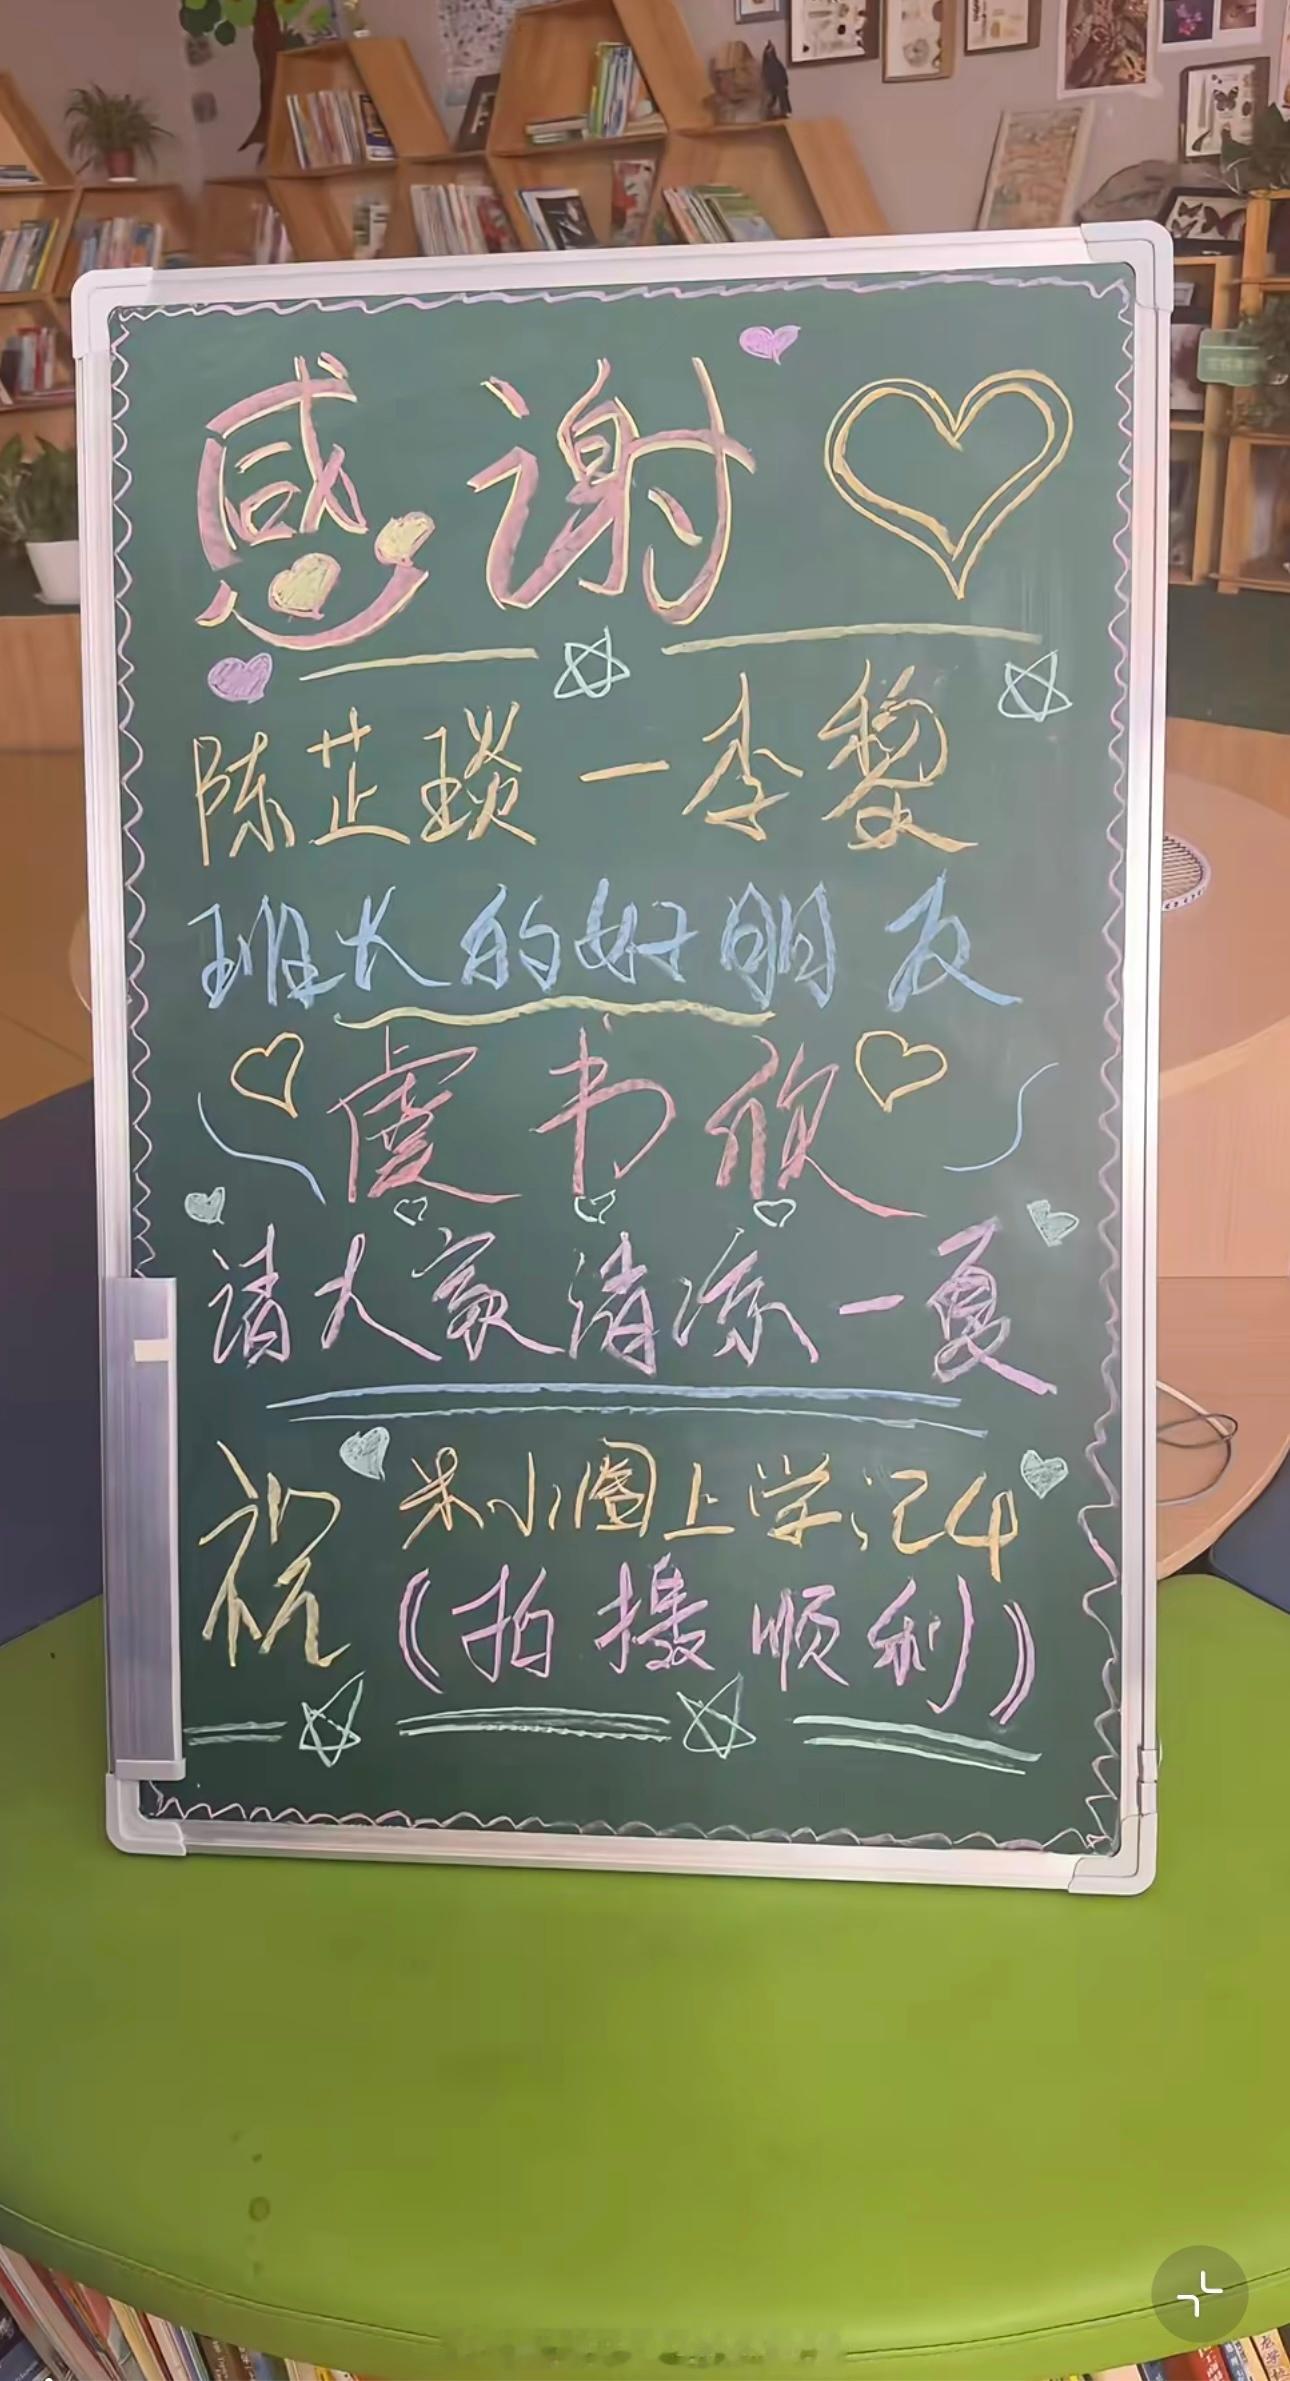 感谢
陈芷琰一李黎
班长的好朋友
虞书欣
请大家清凉一夏
祝 米小圈上学记4
(拍摄顺利)